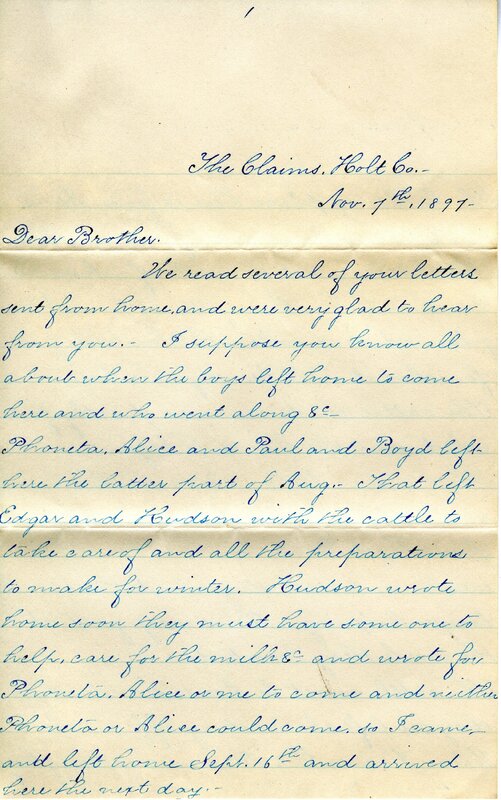 1
The Claims, Holt Co.-
Nov. 7th, 1897-
Dear Brother.
We read several of your letters
sent from home, and were very glad to hear
from you.- I suppose you know all
about when the boys left home to come
here and who went along &c-
Phoneta, Alice and Paul and Boyd left
here the latter part of Aug.- That left
Edgar and Hudson with the cattle to
take care of and all the preparations
to make for winter. Hudson wrote
home soon they must have some one to
help, care for the milk &c and wrote for
Phoneta, Alice or me to come and neither
Phoneta or Alice could come, so I came,
and left home Sept. 16th and arrived
here the next day.-